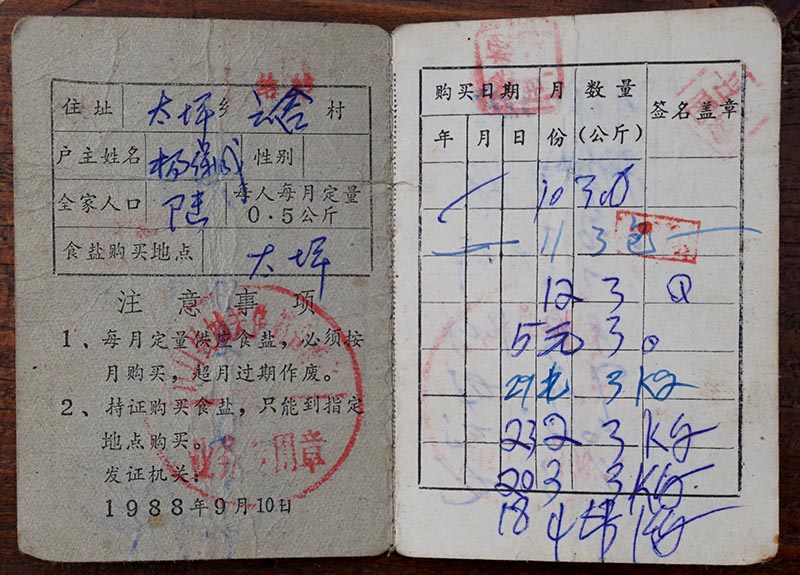 住址 太坪乡 云舍村
户主姓名 杨 性别
全家人口 陆 每人每月定量 0.5公斤
食盐购买地点 太坪
注意事项
1、每月定量供应食盐，必须按
月购买，超月过期作废。
2、持证购买食盐，只能到指定
地点购买。
发证机关：
业务专用章
1988年9月10日
购买日期 月 数量 签名盖章
年 月 日 份 (公斤)
10 3
11 3包
12 3
5 元 3
21 元 3 Kg
23 2 3 Kg
20 3 3 Kg
18 4 Kg